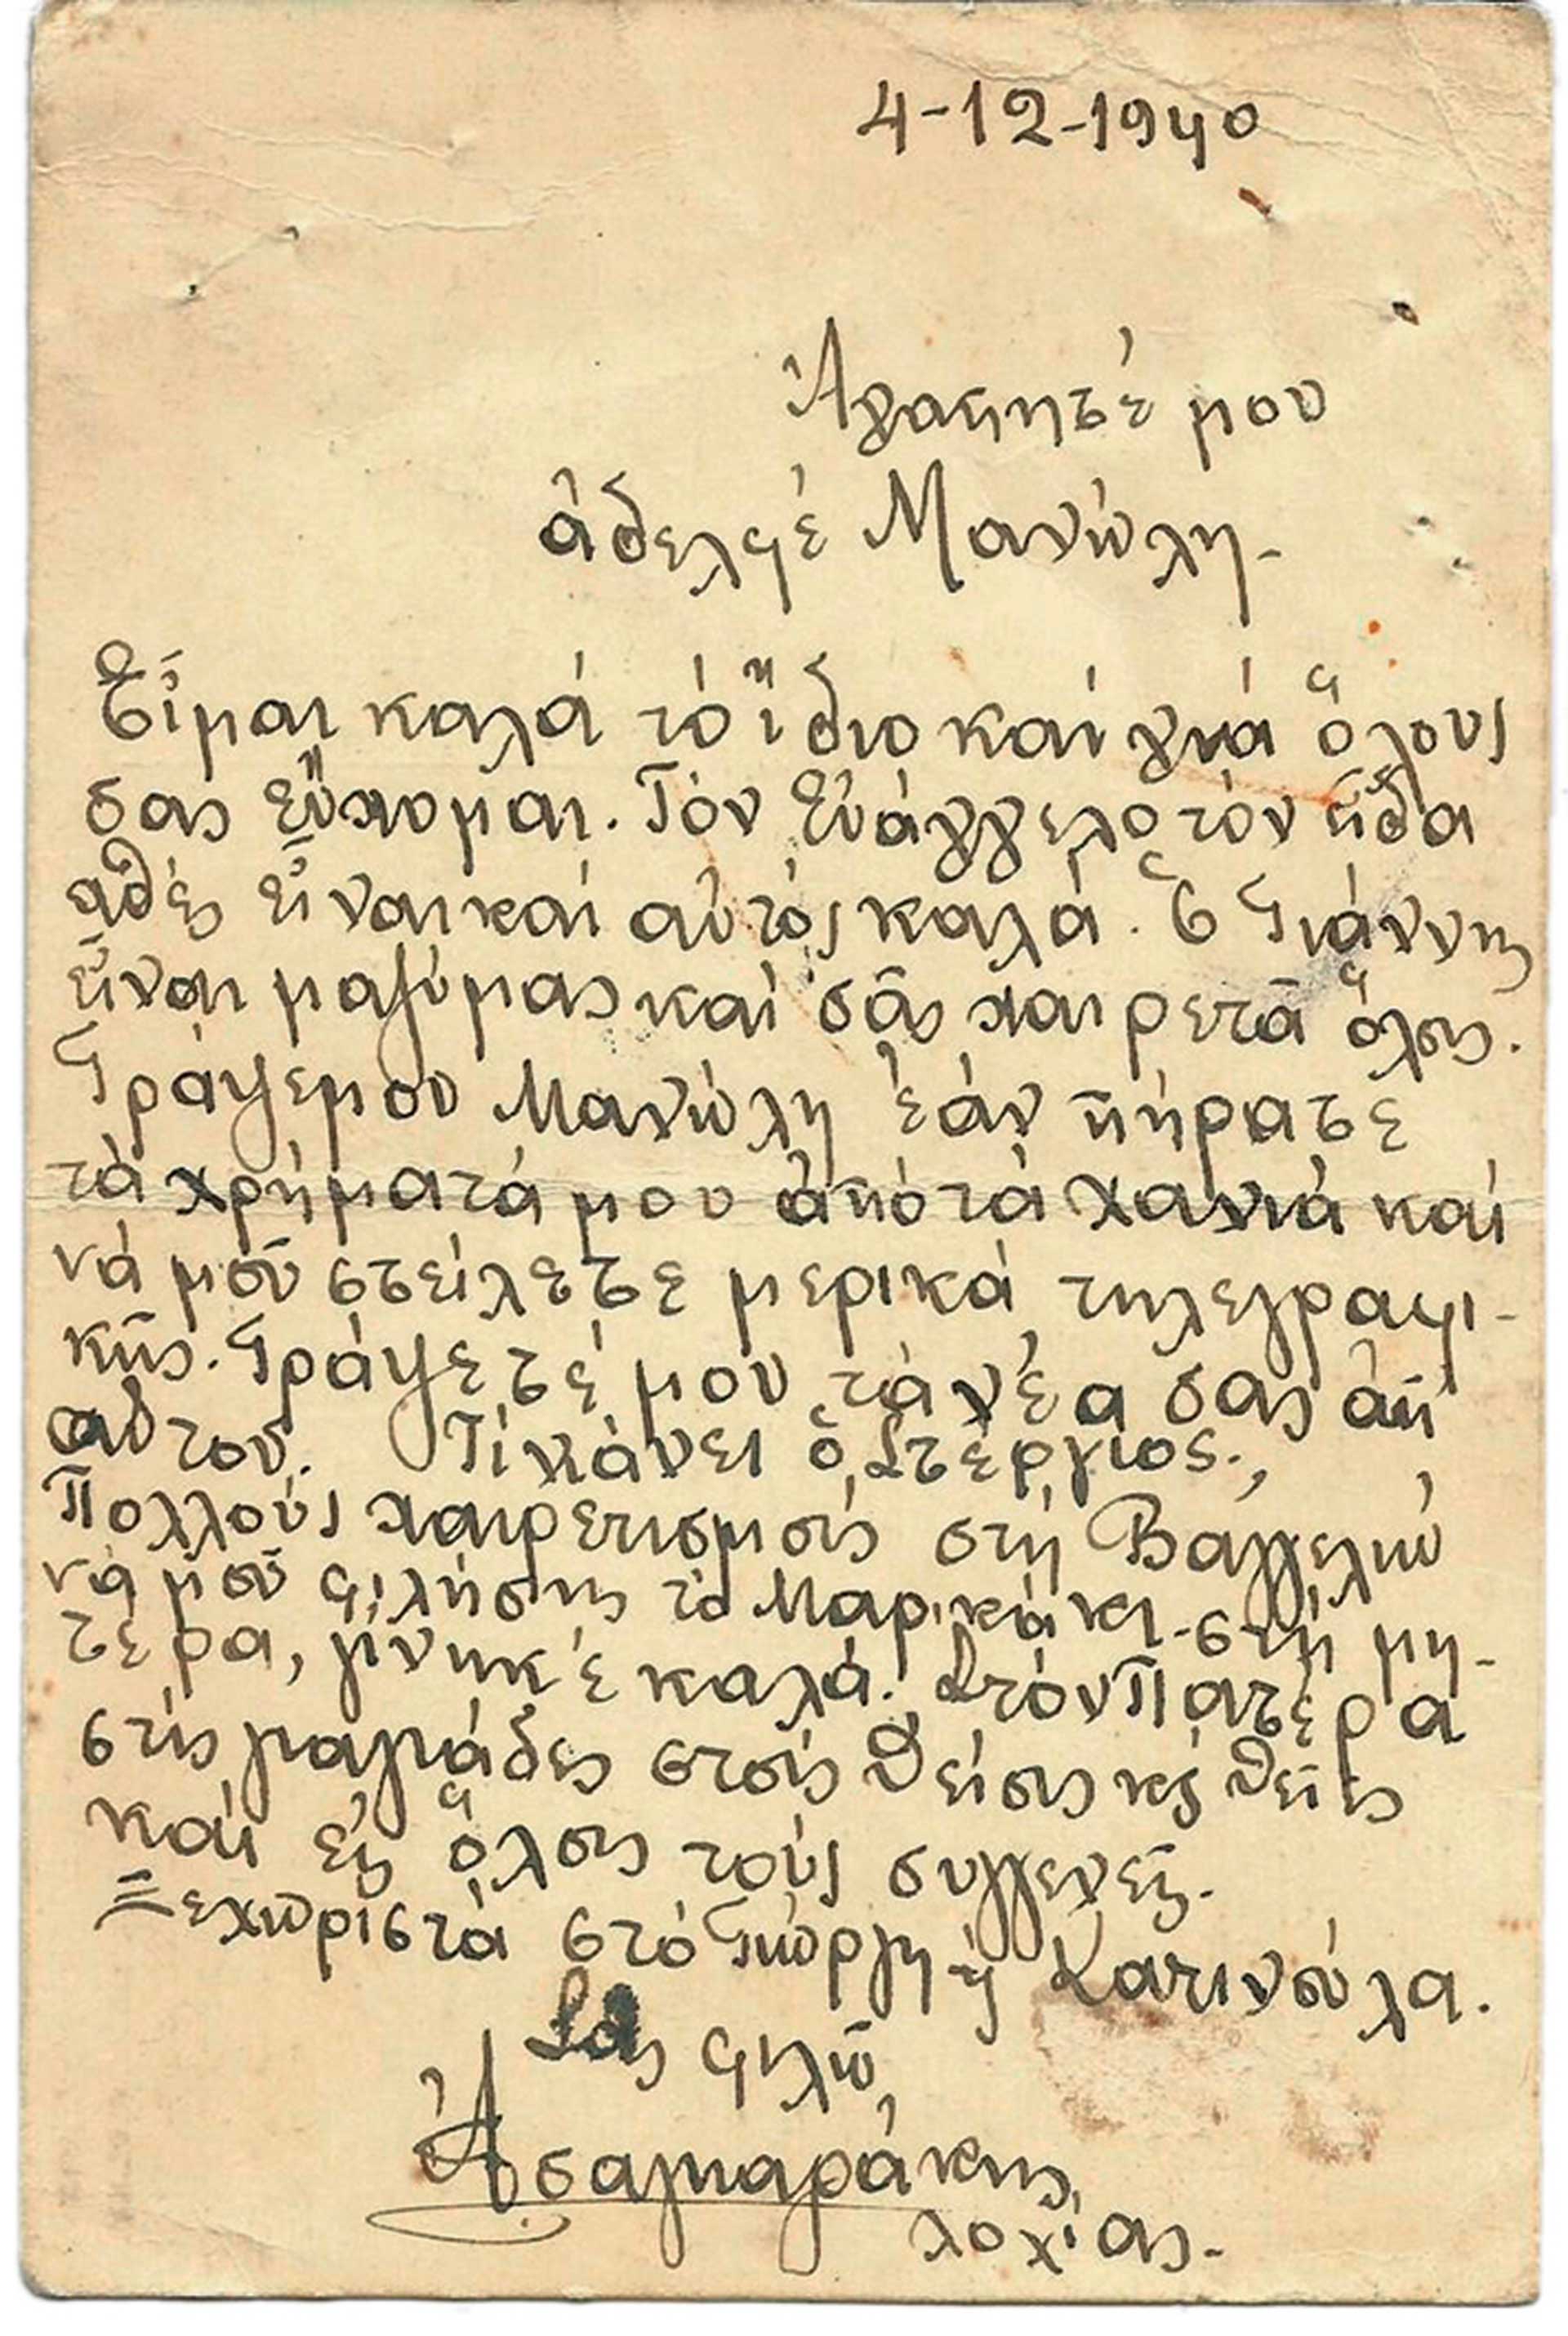 4-12-1940
Ἀγαπητέ μου
ἀδελφέ Μανώλη-
Εἶμαι καλά τό ἴδιο καί γιά ὅλους
σας εὔχομαι. Τόν Εὐάγγελο τόν εἶδα
χθές εἶναι καί αὐτός καλά. Ὁ Γιάννης
εἶναι μαζύ μας καί σᾶς χαιρετᾶ ὅλους.
Γράψε μου Μανώλη ἐάν πήρατε
τά χρήματά μου ἀπό τά Χανιά καί
νά μοῦ στείλετε μερικά τηλεγραφι-
κῶς. Γράψετέ μου τά νέα σας ἀπ
αὐτοῦ. Τί κάνει ὁ Στέργιος.;
Πολλούς χαιρετισμούς στή Βαγγελιώ
νά μοῦ φιλήσης τό Μαρικάκι-στή μη-
τερα, γίνηκε καλά. Στόν Πατέρα
στίς γιαγιάδες στούς θείους κ᾽ θεῖες
καί εἰς ὅλους τούς συγγενεῖς.
Ξεχωριστά στό Γιώργη ἤ Κατινούλα.
Σας φιλῶ
λοχίας-